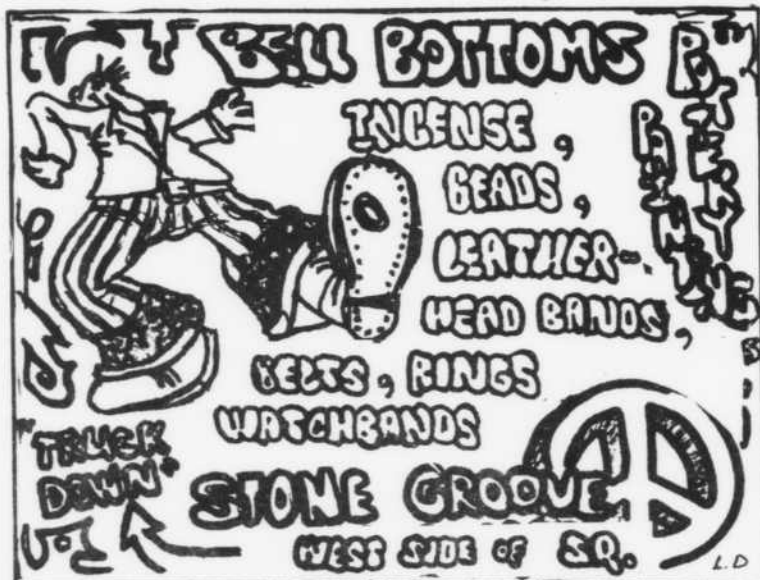 BELL BOTTOMS
INCENSE,
BEADS,
LEATHER-
HEAD BANDS,
BELTS, RINGS
WATCHBANDS
POTTERY
PAINTING
"TRUCK
DOWN"
STONE GROOVE
WEST SIDE OF SQ.
L.D